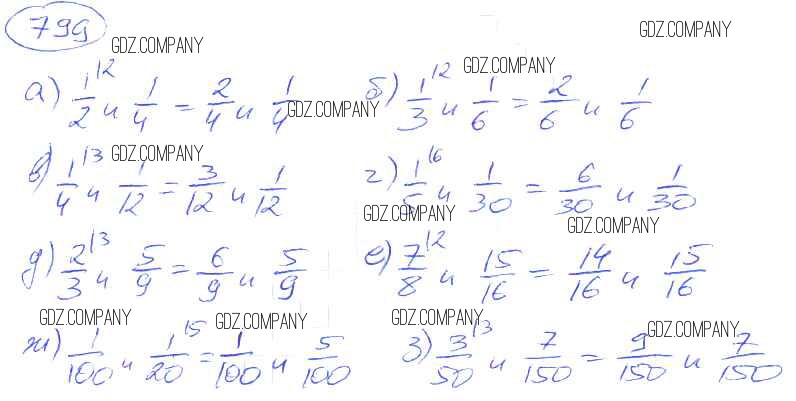 799
GDZ.COMPANY GDZ.COMPANY
а) 1/2 ^12 и 1/4 = 2/4 и 1/4 GDZ.COMPANY б) 1/3 ^12 и 1/6 = 2/6 и 1/6 GDZ.COMPANY
в) 1/4 ^13 и 1/12 = 3/12 и 1/12 GDZ.COMPANY г) 1/5 ^16 и 1/30 = 6/30 и 1/30
GDZ.COMPANY GDZ.COMPANY
д) 2/3 ^13 и 5/9 = 6/9 и 5/9 е) 7/8 ^12 и 15/16 = 14/16 и 15/16
GDZ.COMPANY GDZ.COMPANY GDZ.COMPANY GDZ.COMPANY
ж) 1/100 и 1/20 ^15 = 1/100 и 5/100 з) 3/50 ^13 и 7/150 = 9/150 и 7/150